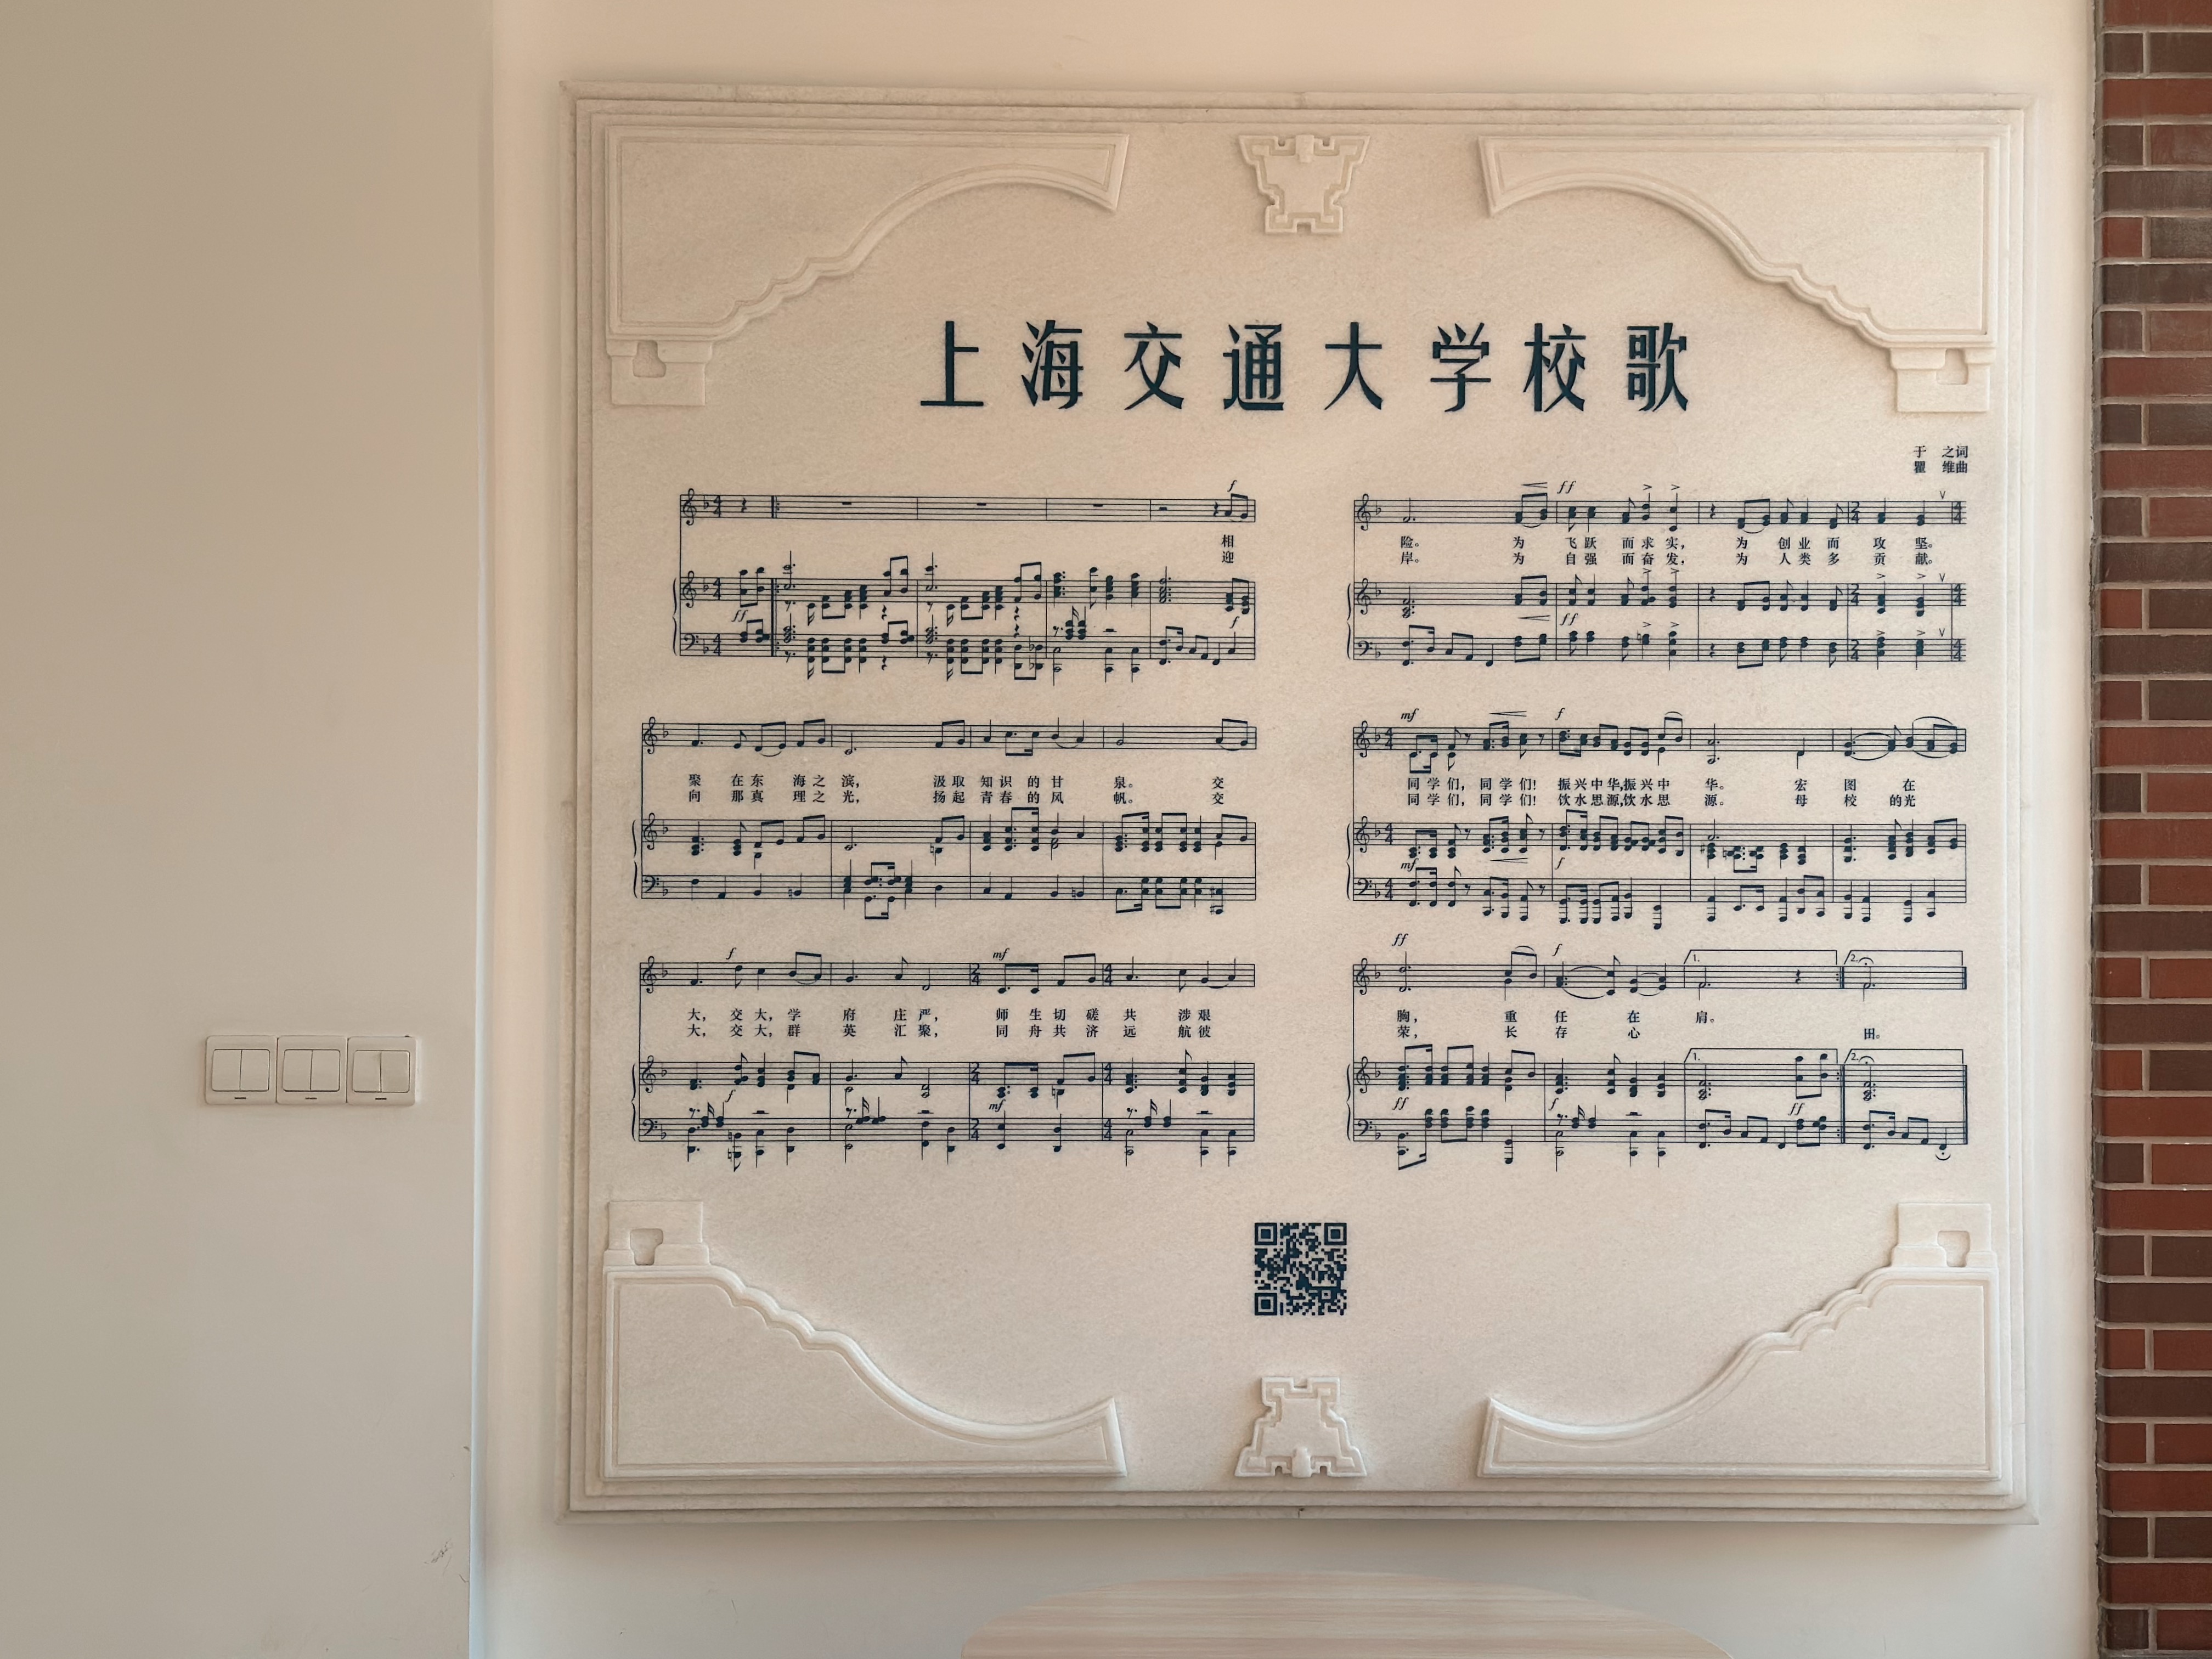 上海交通大学校歌
于 之词
瞿 维曲
f
相
迎
ff
f
聚 在东 海之滨, 汲取 知识 的甘 泉。 交
向 那真 理之光, 扬起 青春 的风 帆。 交
f mf
大, 交大,学 府 庄严, 师 生切 磋 共 涉艰
大, 交大,群 英 汇聚, 同 舟共 济 远 航彼
f mf
ff
险。 为 飞跃 而求实, 为 创业而 攻 坚。
岸。 为 自强 而奋发, 为 人类多 贡 献。
ff
mf f
同学们, 同学们! 振兴中华,振兴中 华。 宏 图 在
同学们, 同学们! 饮水思源,饮水思 源。 母 校 的光
mf f
ff f 1. 2.
胸, 重 任 在 肩。
荣, 长 存 心 田。
1. 2.
ff f ff